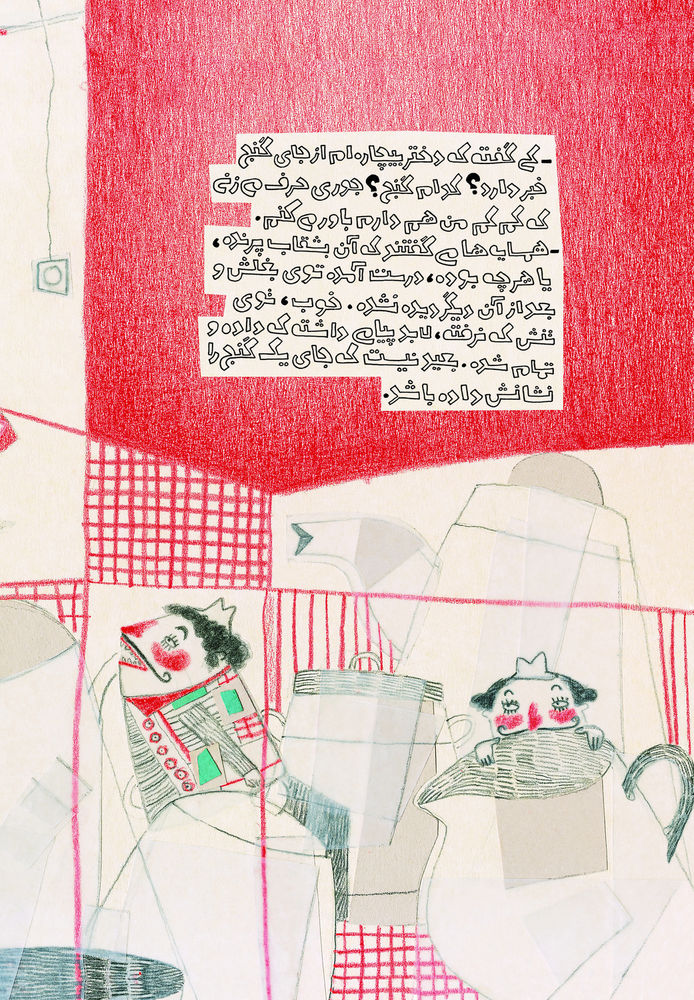 - کی گفته که دختر بیچاره‌ام از جای گنج
خبر دارد؟ کدام گنج؟ جوری حرف می‌زنی
که کم کم من هم دارم باور می‌کنم.
- همسایه‌ها می‌گفتند که آن بشقاب پرنده،
یا هر چه بوده، درست آمده توی بغلش و
بعد از آن دیگر دیده نشده. خوب، توی
تنش که نرفته، لابد پیامی داشته که داده و
تمام شده. بعید نیست که جای یک گنج را
نشانش داده باشد.